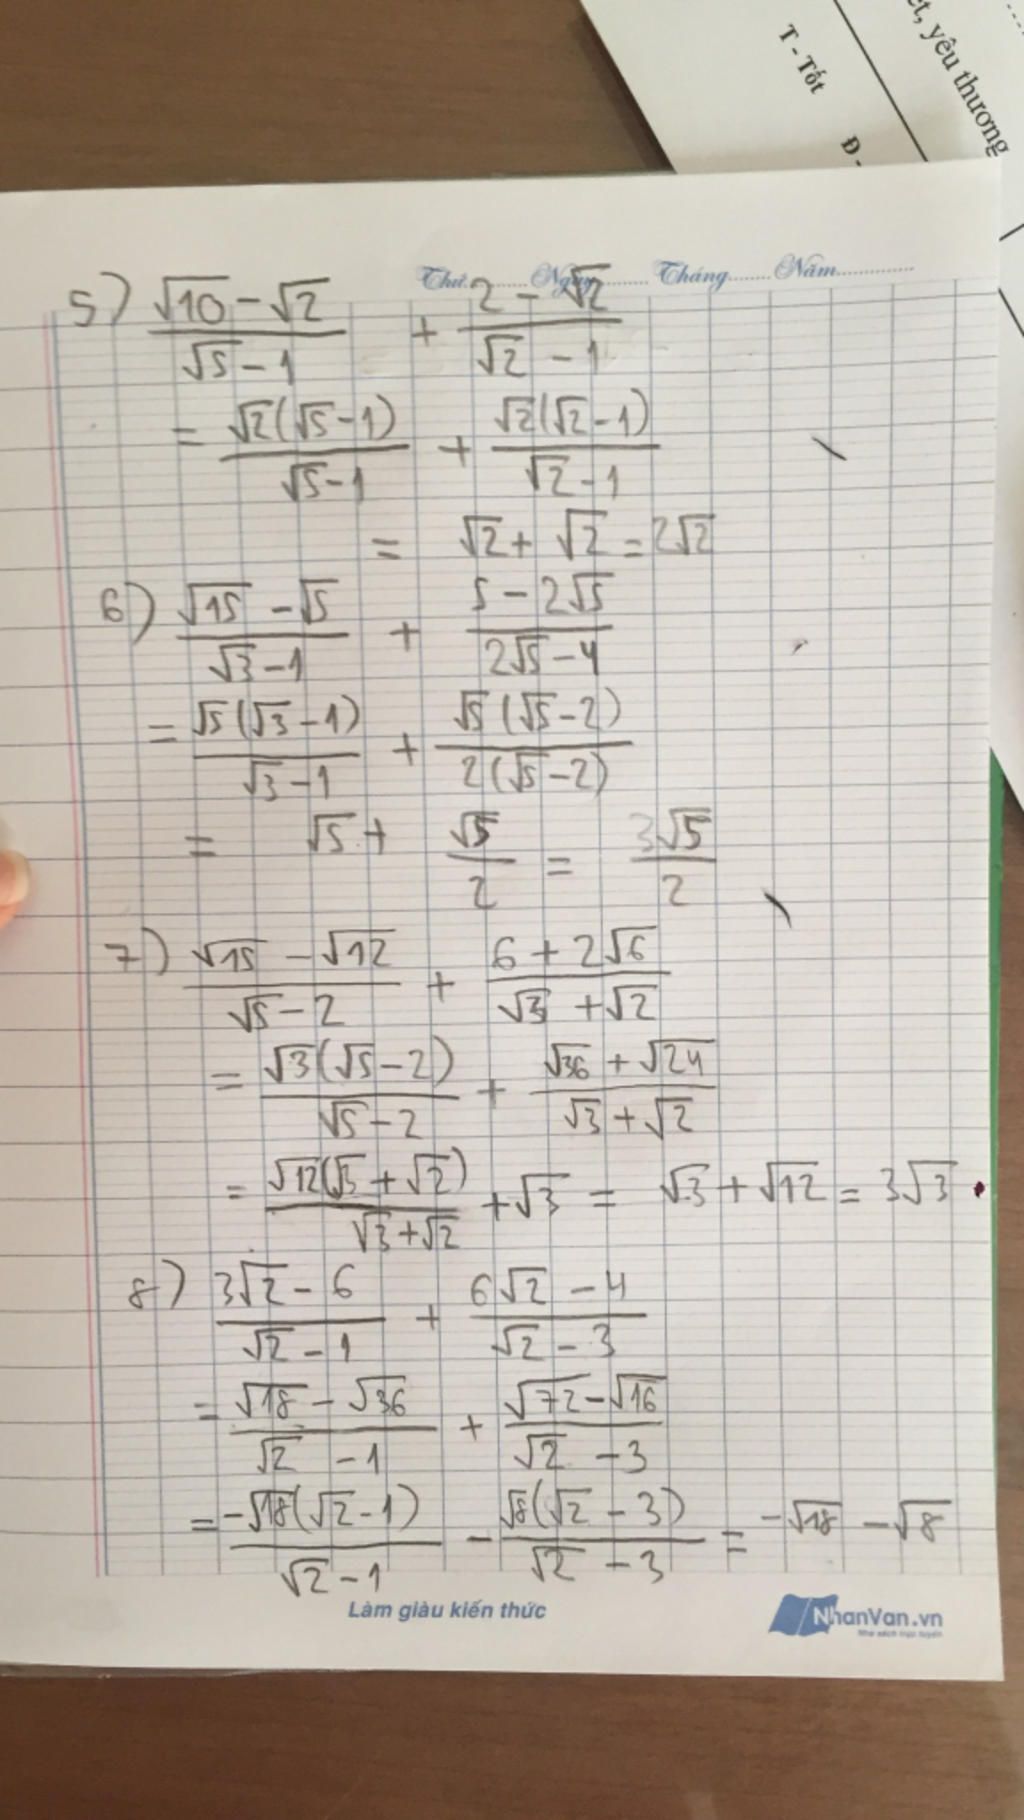 T - Tốt
Đ -
yêu thương
Thứ......... Ngày......... Tháng....... Năm.............
5) (√10 - √2)/(√5 - 1) + (2 - √2)/(√2 - 1)
= √2(√5-1)/(√5-1) + √2(√2-1)/(√2-1)
= √2 + √2 = 2√2
6) (√15 - √5)/(√3-1) + (5 - 2√5)/(2√5-4)
= √5(√3-1)/(√3-1) + √5(√5-2)/2(√5-2)
= √5 + √5/2 = 3√5/2
7) (√15 - √12)/(√5-2) + (6 + 2√6)/(√3 + √2)
= √3(√5-2)/(√5-2) + (√36 + √24)/(√3 + √2)
= √12(√3 + √2)/(√3+√2) + √3 = √3 + √12 = 3√3
8) (3√2 - 6)/(√2 - 1) + (6√2 - 4)/(√2 - 3)
= (√18 - √36)/(√2 - 1) + (√72 - √16)/(√2 - 3)
= -√18(√2-1)/(√2-1) - √8(√2 - 3)/(√2 - 3) = -√18 - √8
Làm giàu kiến thức
NhanVan.vn
Nhà sách trực tuyến